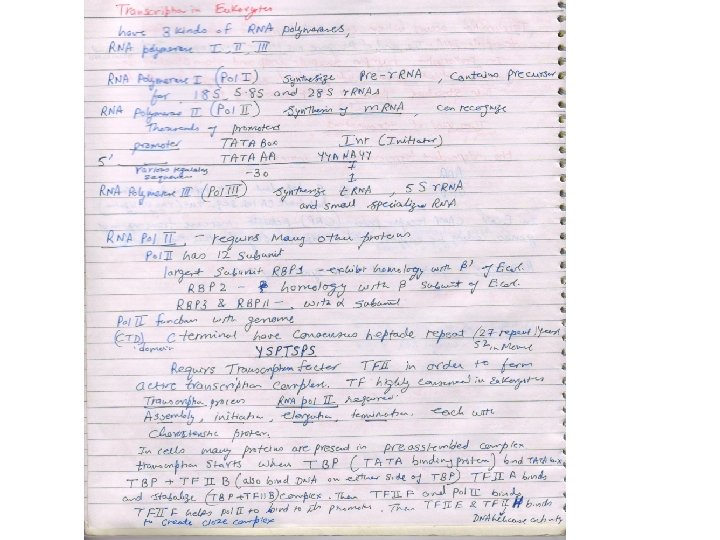 Transcription in Eukaryotes
have 3 kinds of RNA polymerases,
RNA polymerase I, II, III
RNA Polymerase I (Pol I) Synthesize Pre-rRNA, Contains Precursor
for 18S, 5.8S and 28S rRNAs
RNA Polymerase II (Pol II) - Synthesis of mRNA, can recognize
Thousands of promoters
promoter TATA Box Inr (Initiator)
5' TATA AA YYA NA YY
Various regulatory sequences -30 1
RNA Polymerase III (Pol III) Synthesize tRNA, 5S rRNA
and small specialize RNA
RNA Pol II - requirs Many other proteins
Pol II has 12 Subunit
largest Subunit RBP1 - exhibit homology with β' of E.col.
RBP2 - homology with β subunit of E.col.
RBP3 & RBP11 - with α Subunit
Pol II function with genome
(CTD) C terminal have Consensus heptade repeat (27 repeat) Yeast
domain YSPTSPS 52 in Mouse
Requirs Transcription factor TFII in order to form
active transcription complex. TF highly conserved in Eukaryotes
Transcription process RNA pol II required
Assembly, initiation, elongation, termination. each with
Characteristic protein.
In cells many proteins are present in preassembled complex
transcription starts when TBP (TATA binding protein) bind TATA box
TBP + TF II B (also bind DNA on either side of TBP) TFII A binds
and stabalize (TBP+TFIIB) complex. Then TFII F and Pol II binds
TFII F helps pol II to bind to its promoter. Then TFII E & TFII H binds
to create close complex DNA helicase activity